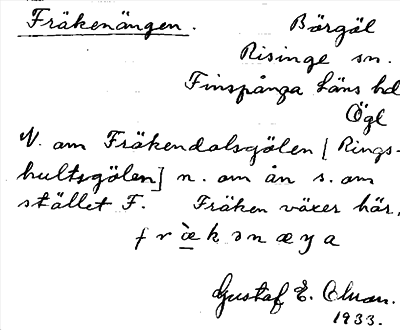 Fräkenängen. Börgöl
Risinge sn.
Finspånga läns hd
Ögl
N. om Fräkendalsgölen [Rings-
hultsgölen] n. om ån s. om
stället F. Fräken växer här.
Gustaf E. 
1933.